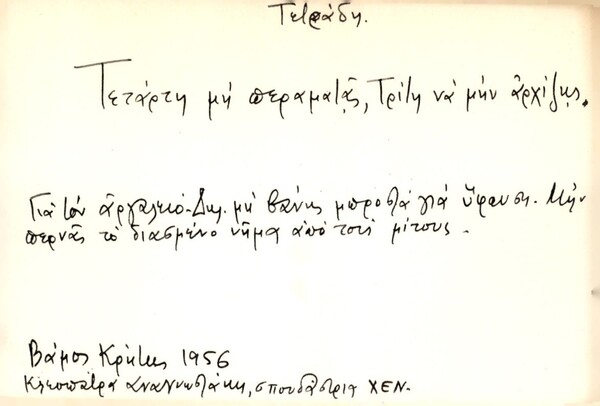 Τετράδη.
Τετάρτη μή περαματᾶς, Τρίτη νὰ μήν ἀρχίζῃς.
Γιὰ τόν ἀργαλειό. Δηλ. μή βάνῃς μπροστὰ γιά ὕφανση. Μήν
περνᾶς τὸ διασμένο νῆμα ἀπό τούς μίτους.
Βάμος Κρήτης 1956
Κλεοπάτρα Αναγνωστάκη, σπουδάστρια ΧΕΝ.